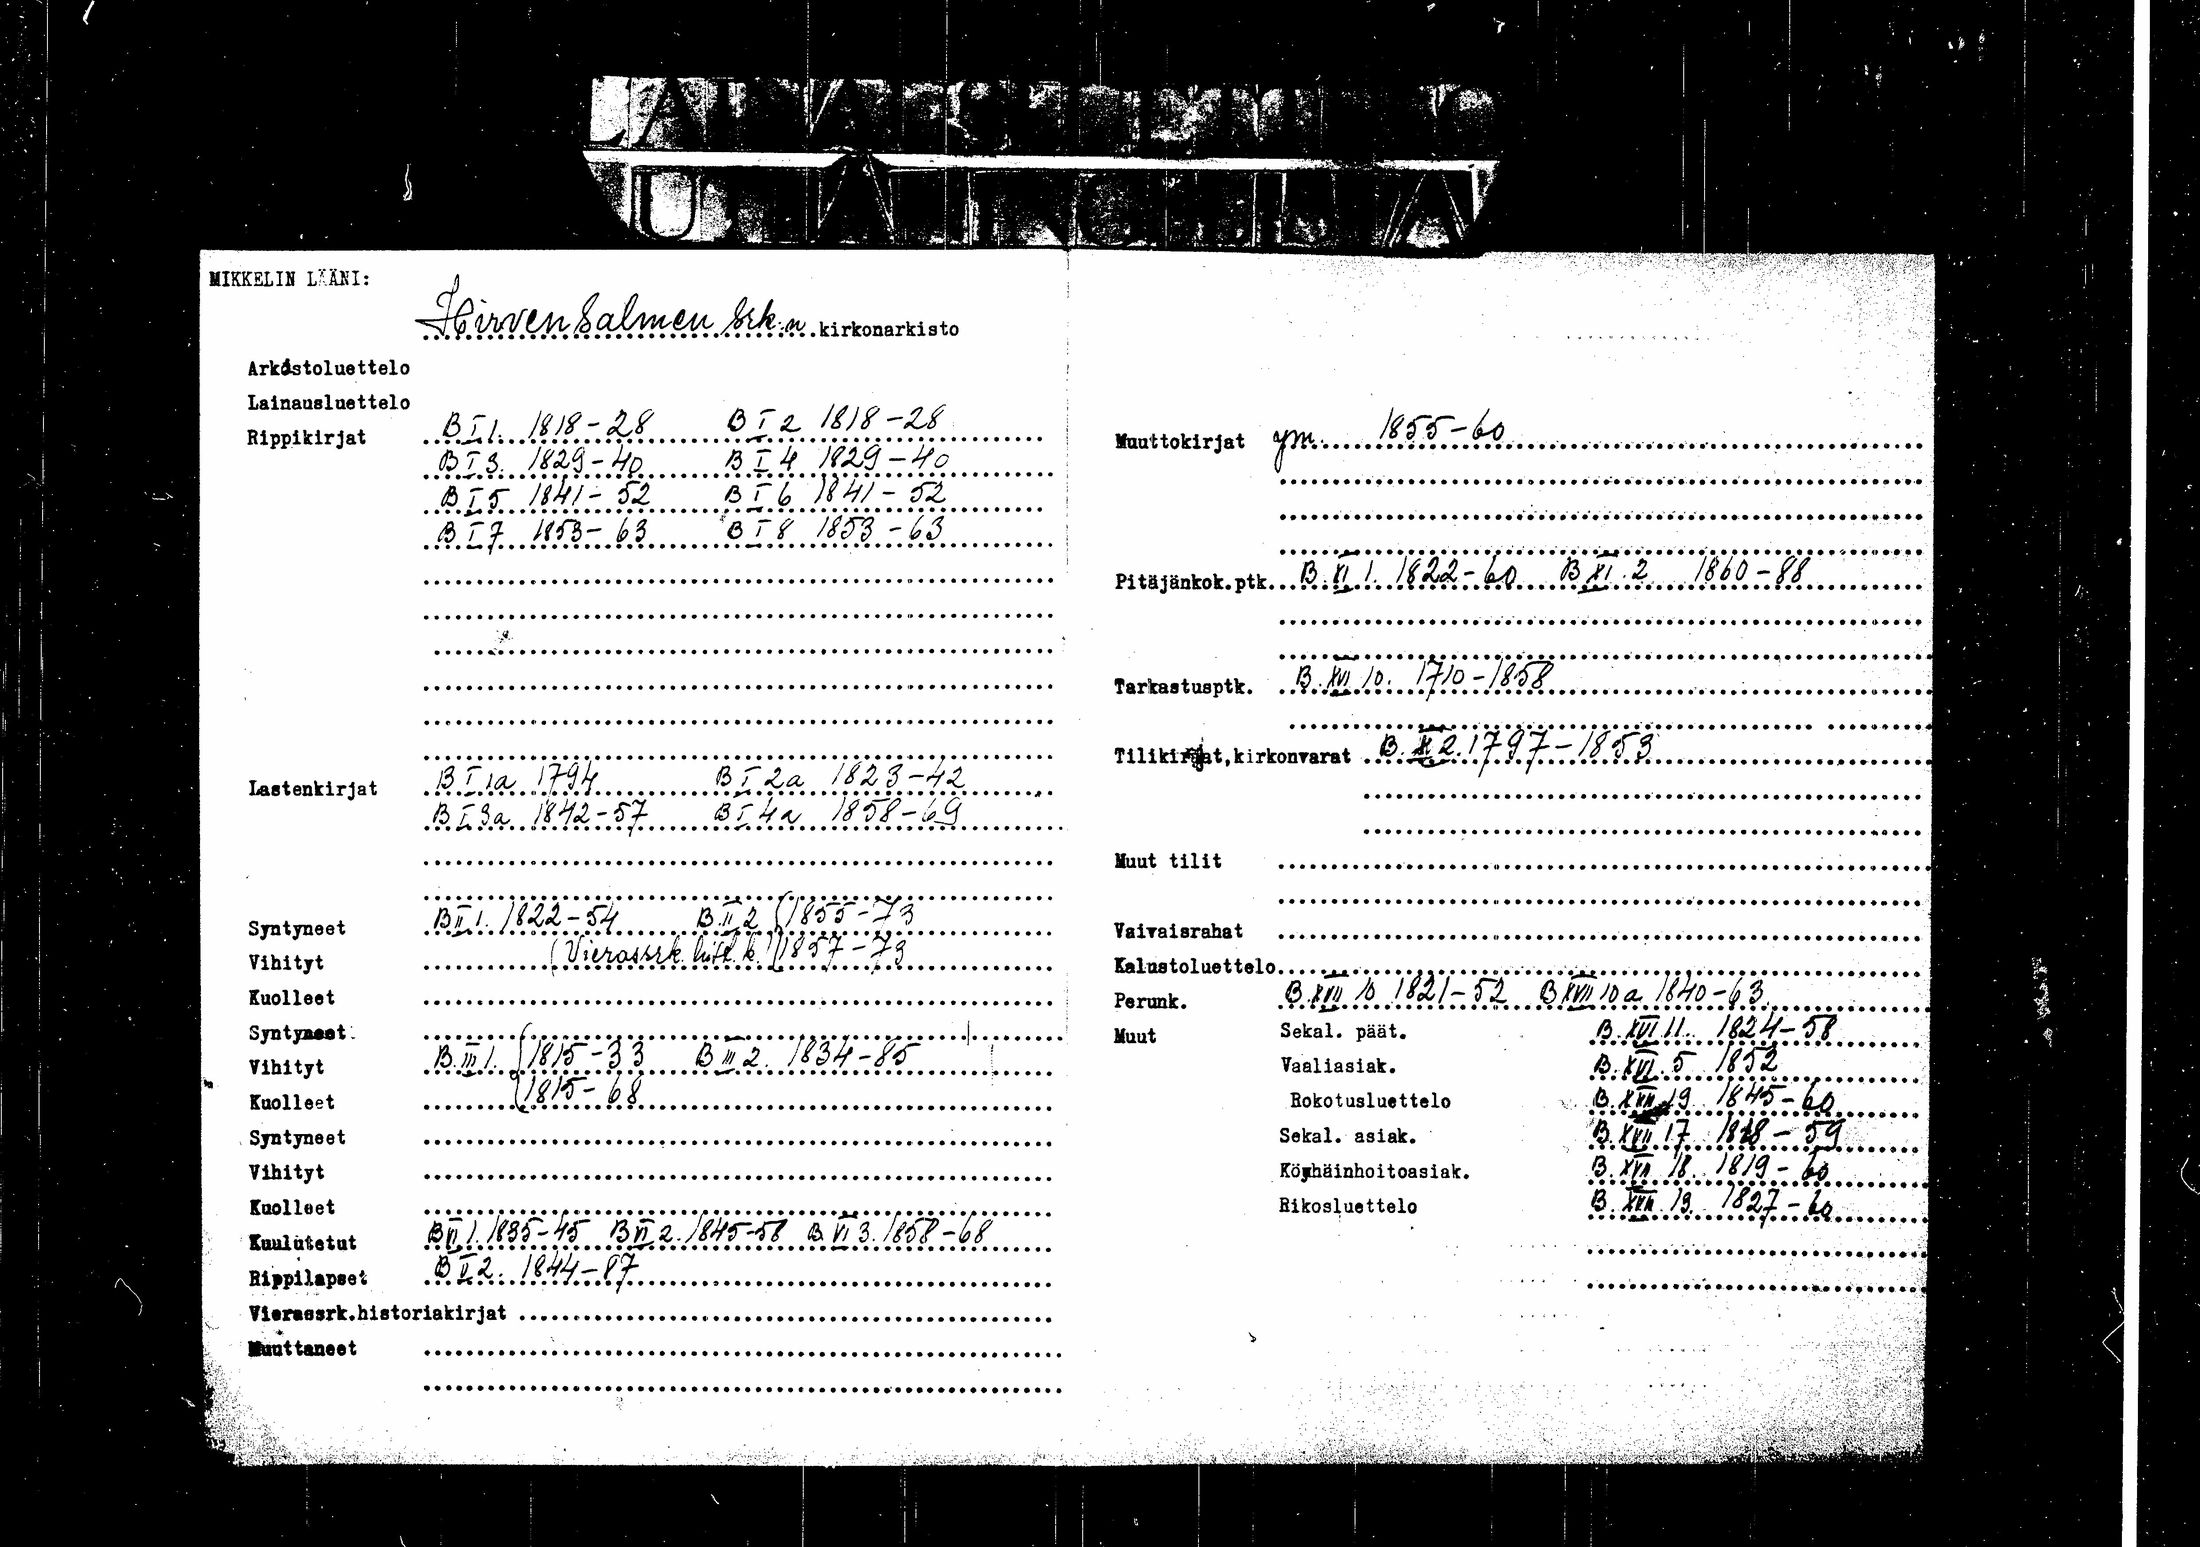 MIKKELIN LÄÄNI:
Hirvensalmen srk:n kirkonarkisto
Arkistoluettelo
Lainausluettelo
Rippikirjat B I 1. 1818-28 B I 2 1818-28
B I 3. 1829-40 B I 4 1829-40
B I 5 1841-52 B I 6 1841-52
B I 7 1853-63 B I 8 1853-63
Lastenkirjat B I 1a 1794 B I 2a 1823-42
B I 3a 1842-57 B I 4a 1858-69
Syntyneet B II 1. 1822-54 B II 2 (1855-73
Vihityt (Vierassrk. hist. k.) (1857-73
Kuolleet
Syntyneet
Vihityt B III 1. (1815-33 B III 2. 1834-85
Kuolleet (1815-68
Syntyneet
Vihityt
Kuolleet
Kuulutetut B VI 1. 1835-45 B VI 2. 1845-58 B VI 3. 1858-68
Rippilapset B V 2. 1844-87
Vierassrk.historiakirjat
Muuttaneet
Muuttokirjat ym. 1855-60
Pitäjänkok.ptk. B. XI 1. 1822-60 B XI. 2 1860-88
Tarkastusptk. B. XVI 10. 1710-1858
Tilikirjat,kirkonvarat B. 2. 1797-1853
Muut tilit
Vaivaisrahat
Kalustoluettelo
Perunk. B. XVII 10 1821-52 B XVII 10 a 1840-63
Muut Sekal. päät. B. XVI 11. 1824-58
Vaaliasiak. B. XVI. 5 1852
Rokotusluettelo B. XVII 19 1845-60
Sekal. asiak. B. XVII 17 1818-59
Köyhäinhoitoasiak. B. XVII 18. 1819-60
Rikosluettelo B. XVII 19. 1827-60